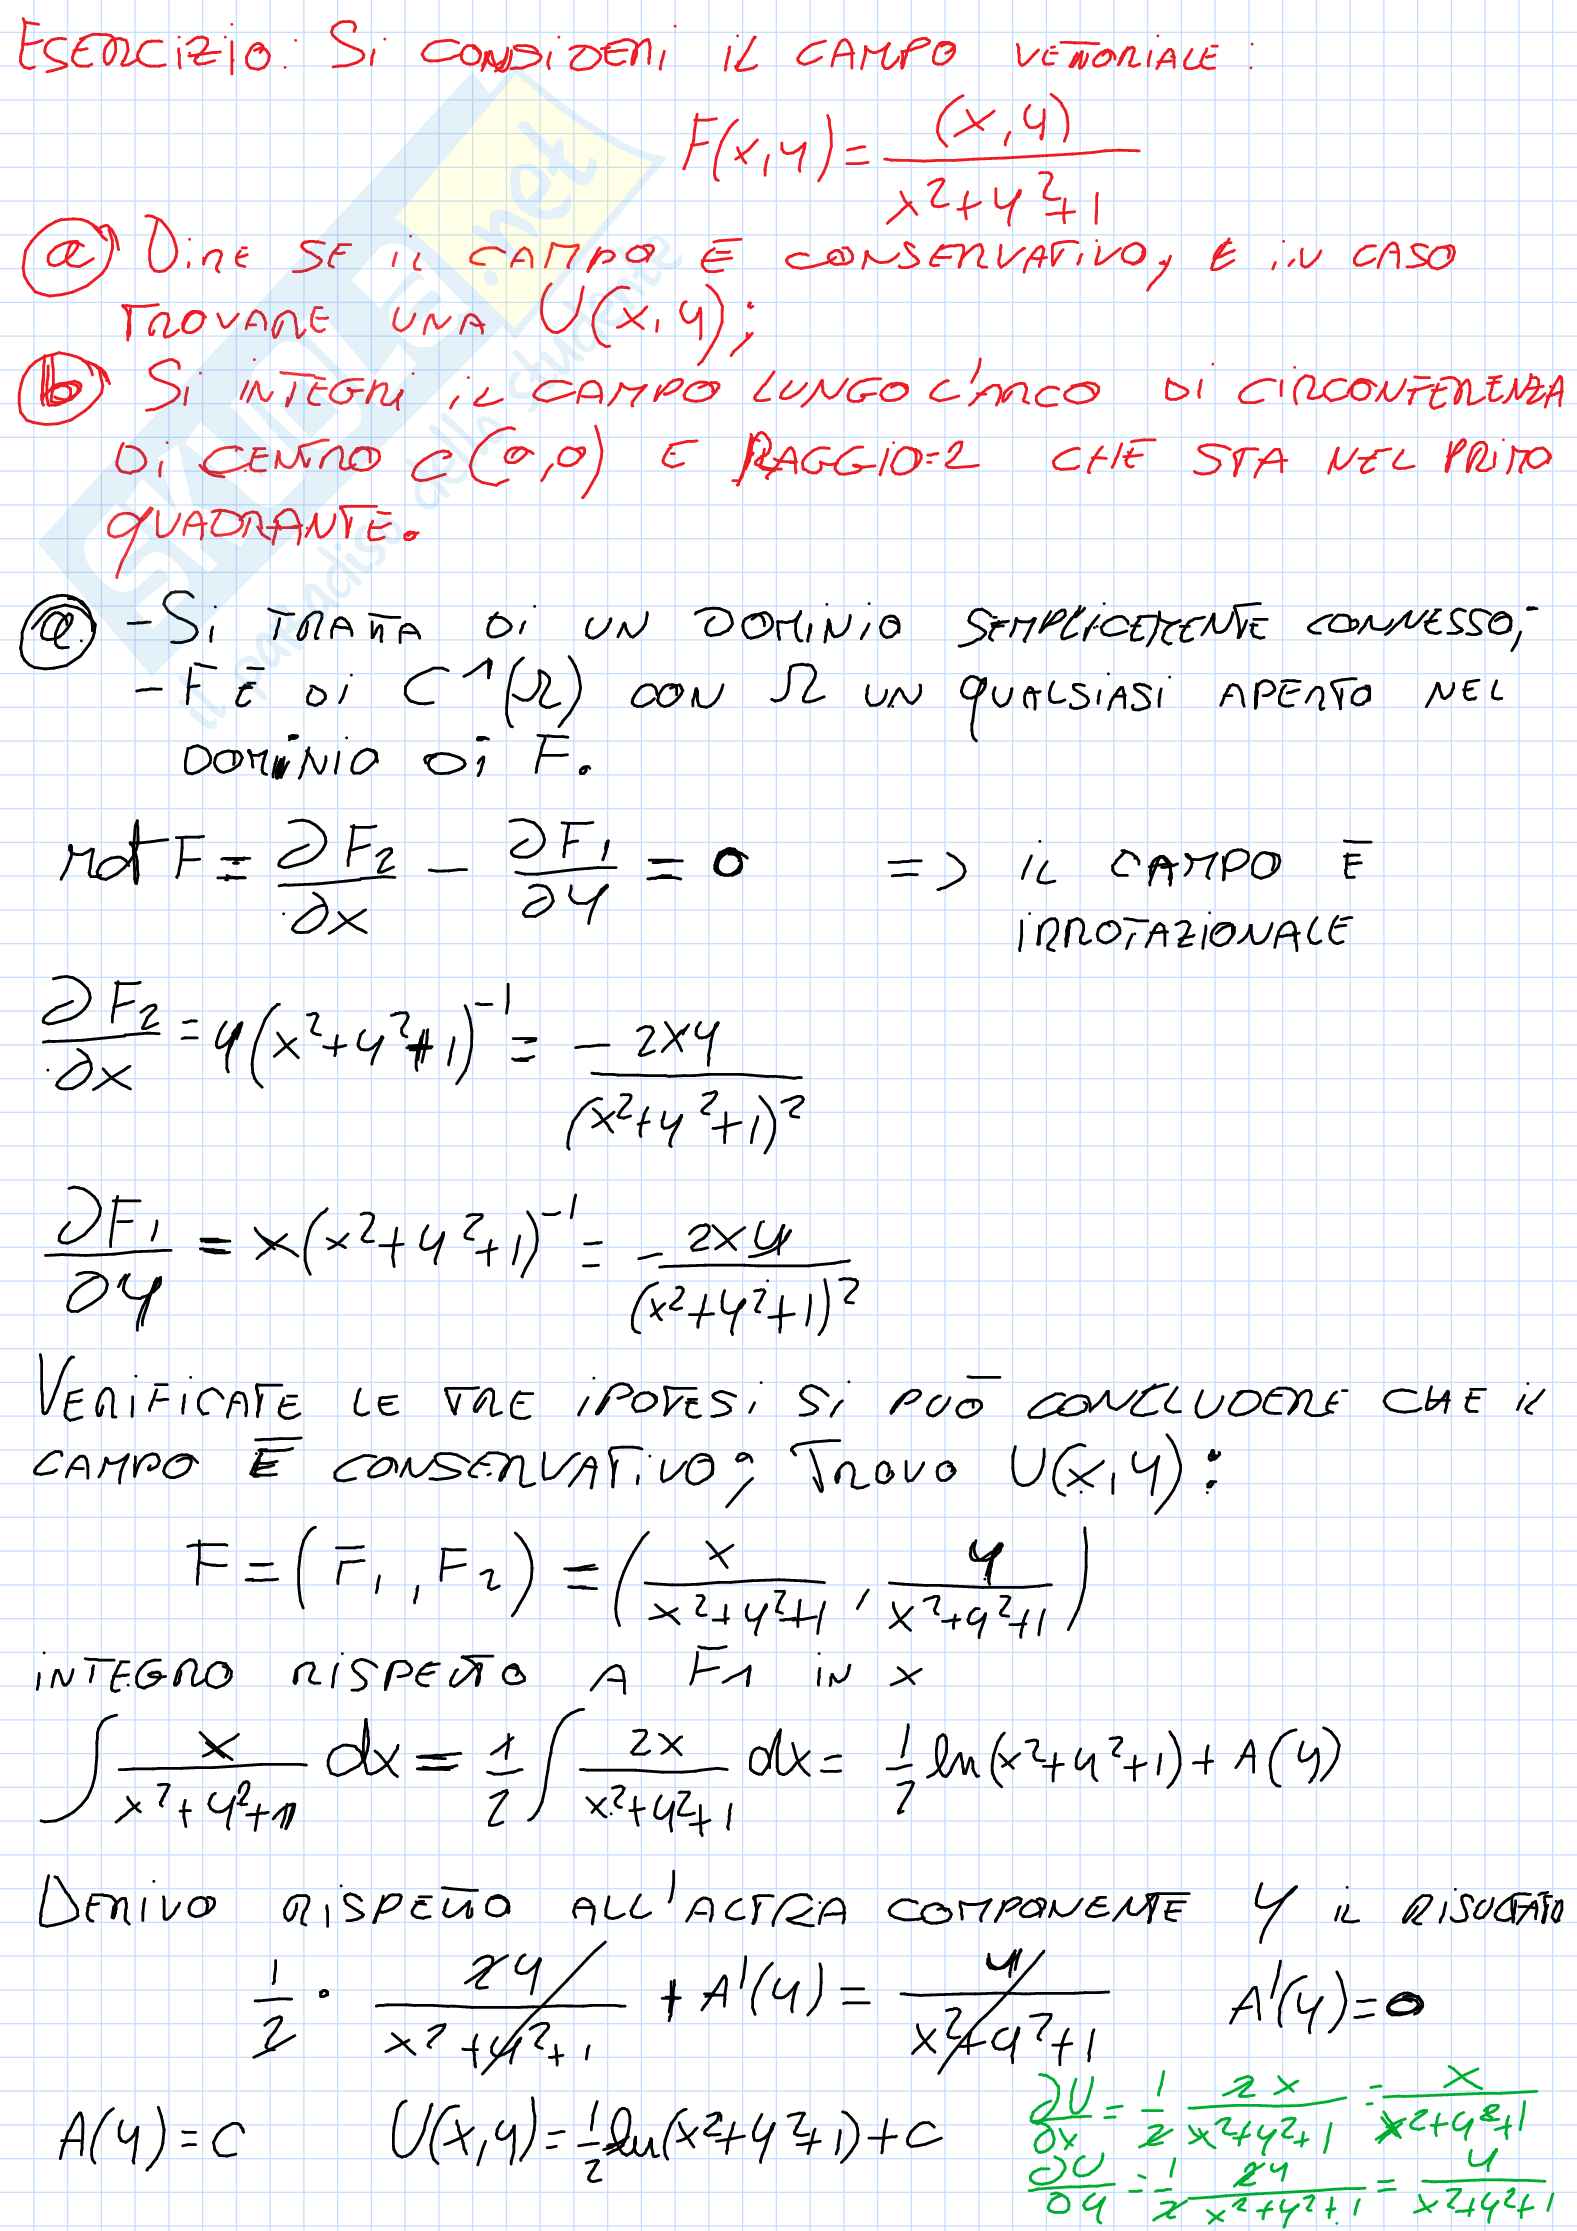 ESERCIZIO: SI CONSIDERI IL CAMPO VETTORIALE:
F(x,y) = (x,y) / (x²+y²+1)
(a) DIRE SE IL CAMPO È CONSERVATIVO, E IN CASO
TROVARE UNA U(x,y);
(b) SI INTEGRI IL CAMPO LUNGO L'ARCO DI CIRCONFERENZA
DI CENTRO C(0,0) E RAGGIO=2 CHE STA NEL PRIMO
QUADRANTE.
(a) - SI TRATTA DI UN DOMINIO SEMPLICEMENTE CONNESSO;
- F È DI C¹(Ω) CON Ω UN QUALSIASI APERTO NEL
DOMINIO DI F.
rot F = ∂F₂/∂x - ∂F₁/∂y = 0 => IL CAMPO È
IRROTAZIONALE
∂F₂/∂x = y(x²+y²+1)⁻¹ = - 2xy / (x²+y²+1)²
∂F₁/∂y = x(x²+y²+1)⁻¹ = - 2xy / (x²+y²+1)²
VERIFICATE LE TRE IPOTESI SI PUÒ CONCLUDERE CHE IL
CAMPO È CONSERVATIVO; TROVO U(x,y):
F = (F₁, F₂) = (x / (x²+y²+1), y / (x²+y²+1))
INTEGRO RISPETTO A F1 IN x
∫ x / (x²+y²+1) dx = 1/2 ∫ 2x / (x²+y²+1) dx = 1/2 ln(x²+y²+1) + A(y)
DERIVO RISPETTO ALL'ALTRA COMPONENTE y IL RISULTATO
1/2 · 2y / (x²+y²+1) + A'(y) = y / (x²+y²+1) A'(y)=0
A(y)=C U(x,y) = 1/2 ln(x²+y²+1) + C
∂U/∂x = 1/2 2x / (x²+y²+1) = x / (x²+y²+1)
∂U/∂y = 1/2 2y / (x²+y²+1) = y / (x²+y²+1)
SKUOLA.net
il paradiso dello studente